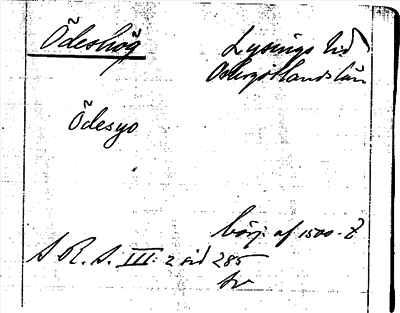 Ödeshög
Lysings hd
Östergötlands län
Ödesyo
börj. af 1500-t
S R. S. III: 2 sid 285